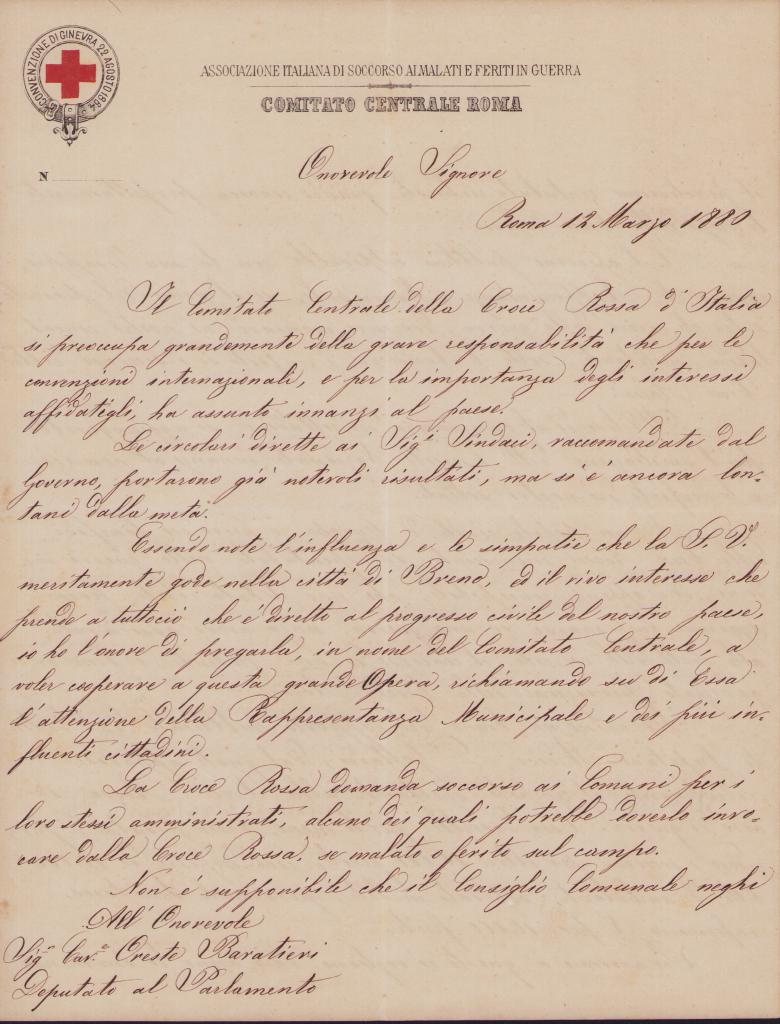 CONVENZIONE DI GINEVRA 22 AGOSTO 1864
ASSOCIAZIONE ITALIANA DI SOCCORSO AI MALATI E FERITI IN GUERRA
COMITATO CENTRALE ROMA
N
Onorevole Signore
Roma 12 Marzo 1880
Il Comitato Centrale della Croce Rossa d'Italia
si preoccupa grandemente della grave responsabilità che per le
convenzioni internazionali, e per la importanza degli interessi
affidatigli, ha assunto innanzi al paese.
Le circolari dirette ai Sigi Sindaci, raccomandate dal
Governo, portarono già notevoli risultati, ma si è ancora lon-
tani dalla meta.
Essendo note l'influenza e le simpatie che la S. V.
meritamente gode nella città di Breno, ed il vivo interesse che
prende a tuttociò che è diretto al progresso civile del nostro paese,
io ho l'onore di pregarla, in nome del Comitato Centrale, a
voler cooperare a questa grande Opera, richiamando su di Essa
l'attenzione della Rappresentanza Municipale e dei più in-
fluenti cittadini.
La Croce Rossa domanda soccorso ai Comuni per i
loro stessi amministrati, alcuno dei quali potrebbe doverlo invo-
care dalla Croce Rossa, se malato o ferito sul campo.
Non è supponibile che il Consiglio Comunale neghi
All' Onorevole
Sig. Cav. Oreste Baratieri
Deputato al Parlamento